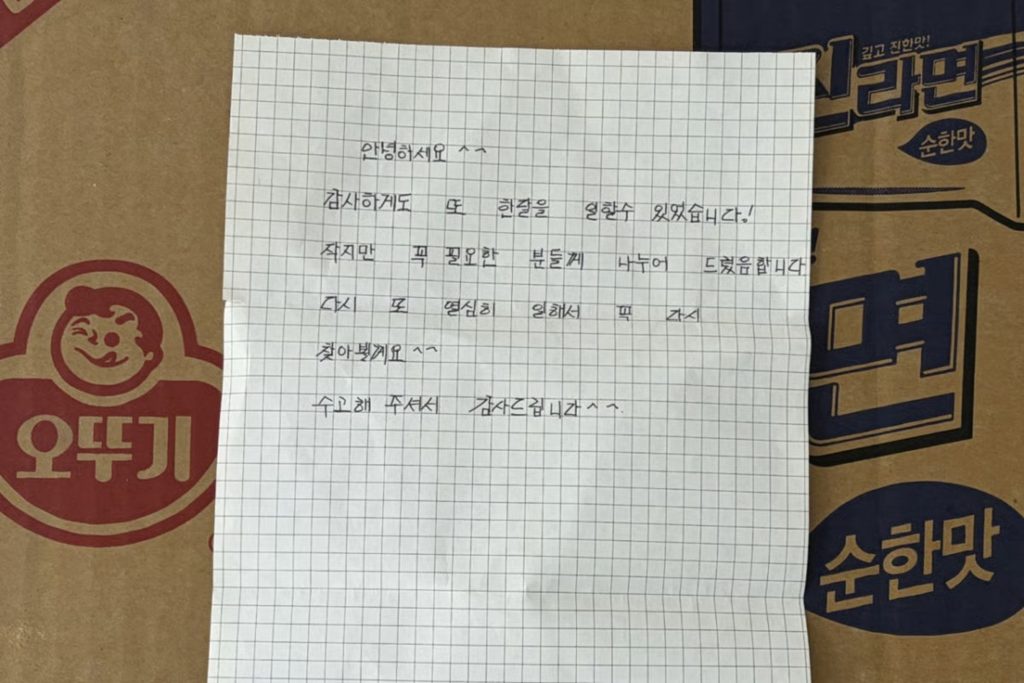 안녕하세요 ^^
감사하게도 또 한달을 일할수 있었습니다!
작지만 꼭 필요한 분들게 나누어 드렸음합니다
다시 또 열심히 일해서 꼭 다시
찾아뵐게요 ^^
수고해 주셔서 감사드립니다^^
오뚜기
깊고 진한맛!
진라면
순한맛
면
순한맛